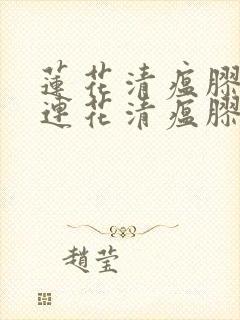 蓮花清瘟膠
連花清瘟膠
趙莹